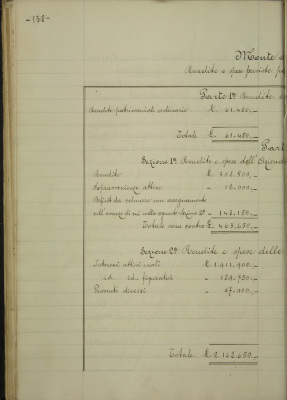 -138-
Monte
Rendite e spese previste
Parte 1ª Rendite e
Rendite patrimoniali ordinarie £ 61.450.-
Totale £ 61.450.-
Part
Sezione 1ª Rendite e spese dell'Aziend
Rendite £ 308.500.-
Sopravvenienze attive " 12.000.-
Deficit da colmare con assegnamento
sull'avanzo di cui nella seguente Sezione 2ª " 143.150.-
Totale come contro £ 463.650.-
Sezione 2ª Rendite e spese delle
Interessi attivi reali £ 1.911.900.-
id. id. figurativi " 129.750.-
Proventi diversi " 67.000.-
Totale £ 2.163.650.-